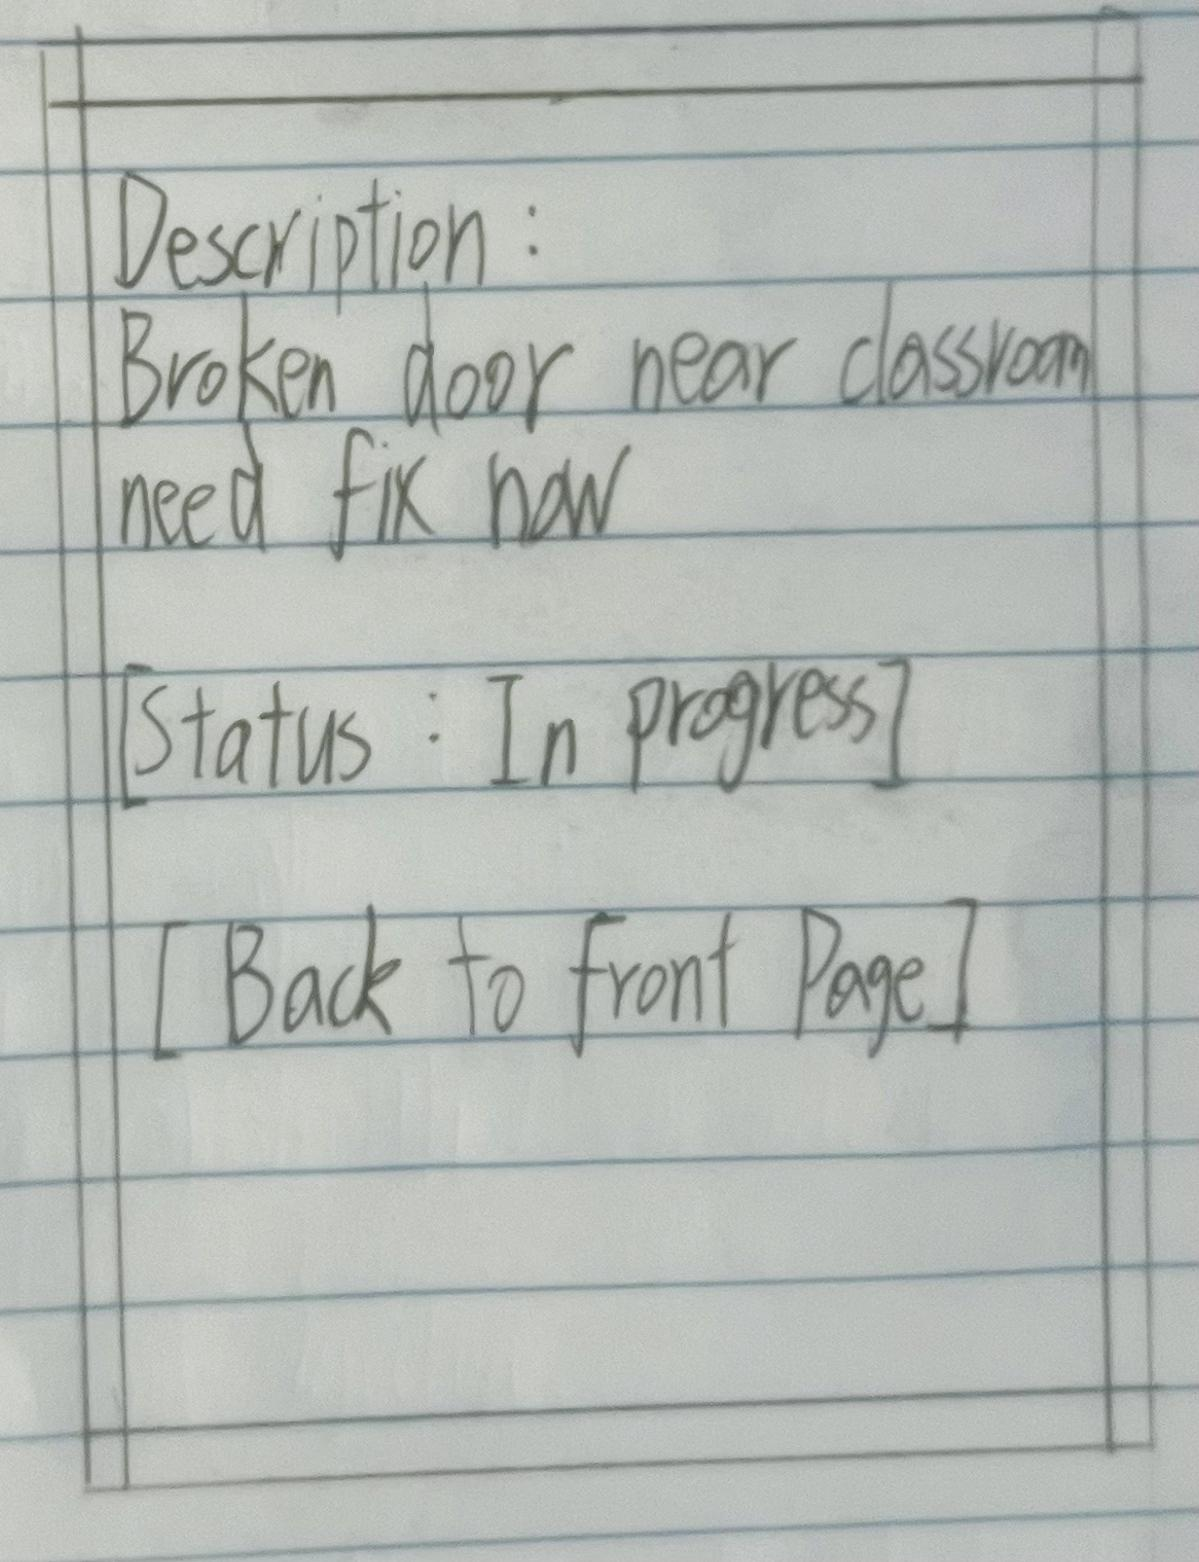 Description :
Broken door near classroom
need fix now
[Status : In progress]
[ Back to front Page]